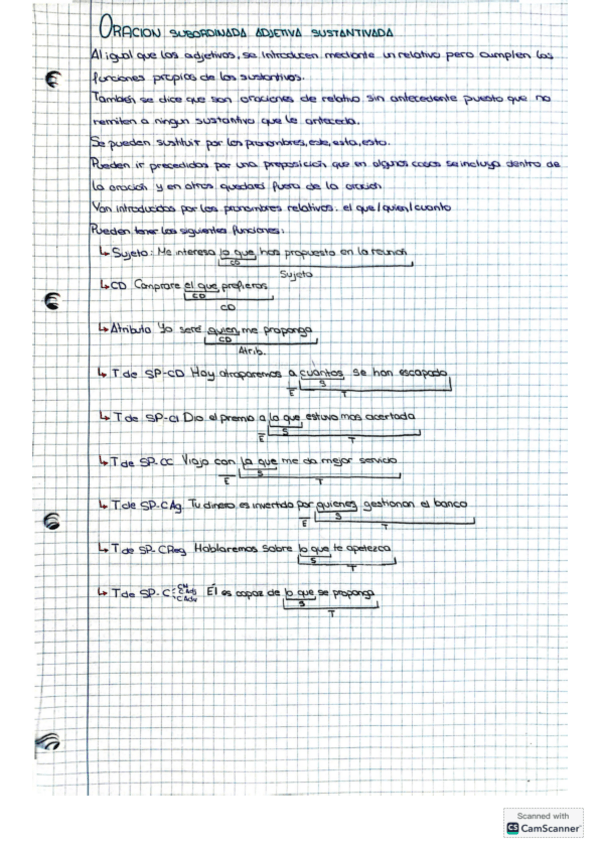 ORACION SUBORDINADA ADJETIVA SUSTANTIVADA
Al igual que los adjetivos, se introducen mediante un relativo pero cumplen las
funciones propias de los sustantivos.
También se dice que son oraciones de relativo sin antecedente puesto que no
remiten a ningun sustantivo que le anteceda.
Se pueden sustituir por los pronombres, este, esta, esto.
Pueden ir precedidas por una preposición que en algunos casos se incluya dentro de
la oración y en otros quedará fuera de la oración
Van introducidas por los pronombres relativos: el que/quien/cuanto
Pueden tener las siguientes funciones:
↳ Sujeto: Me interesa lo que has propuesto en la reunión
CD
Sujeto
↳ CD Comprare el que prefieras
CD
CD
↳ Atributo Yo seré quien me proponga
CD
Atrib.
↳ T de SP-CD Hoy atraparemos a cuántos se han escapado
S
E T
↳ T de SP-CI Dio el premio a la que estuvo mas acertada
S
E T
↳ T de SP-CC Viajo con la que me da mejor servicio
S
E T
↳ T de SP-CAg Tu dinero es invertido por quienes gestionan el banco
S
E T
↳ T de SP-CReg Hablaremos sobre lo que te apetezca
S
T
↳ T de SP-C: CN CAdj CAdv Él es capaz de lo que se proponga
S
T
Scanned with
CS CamScanner